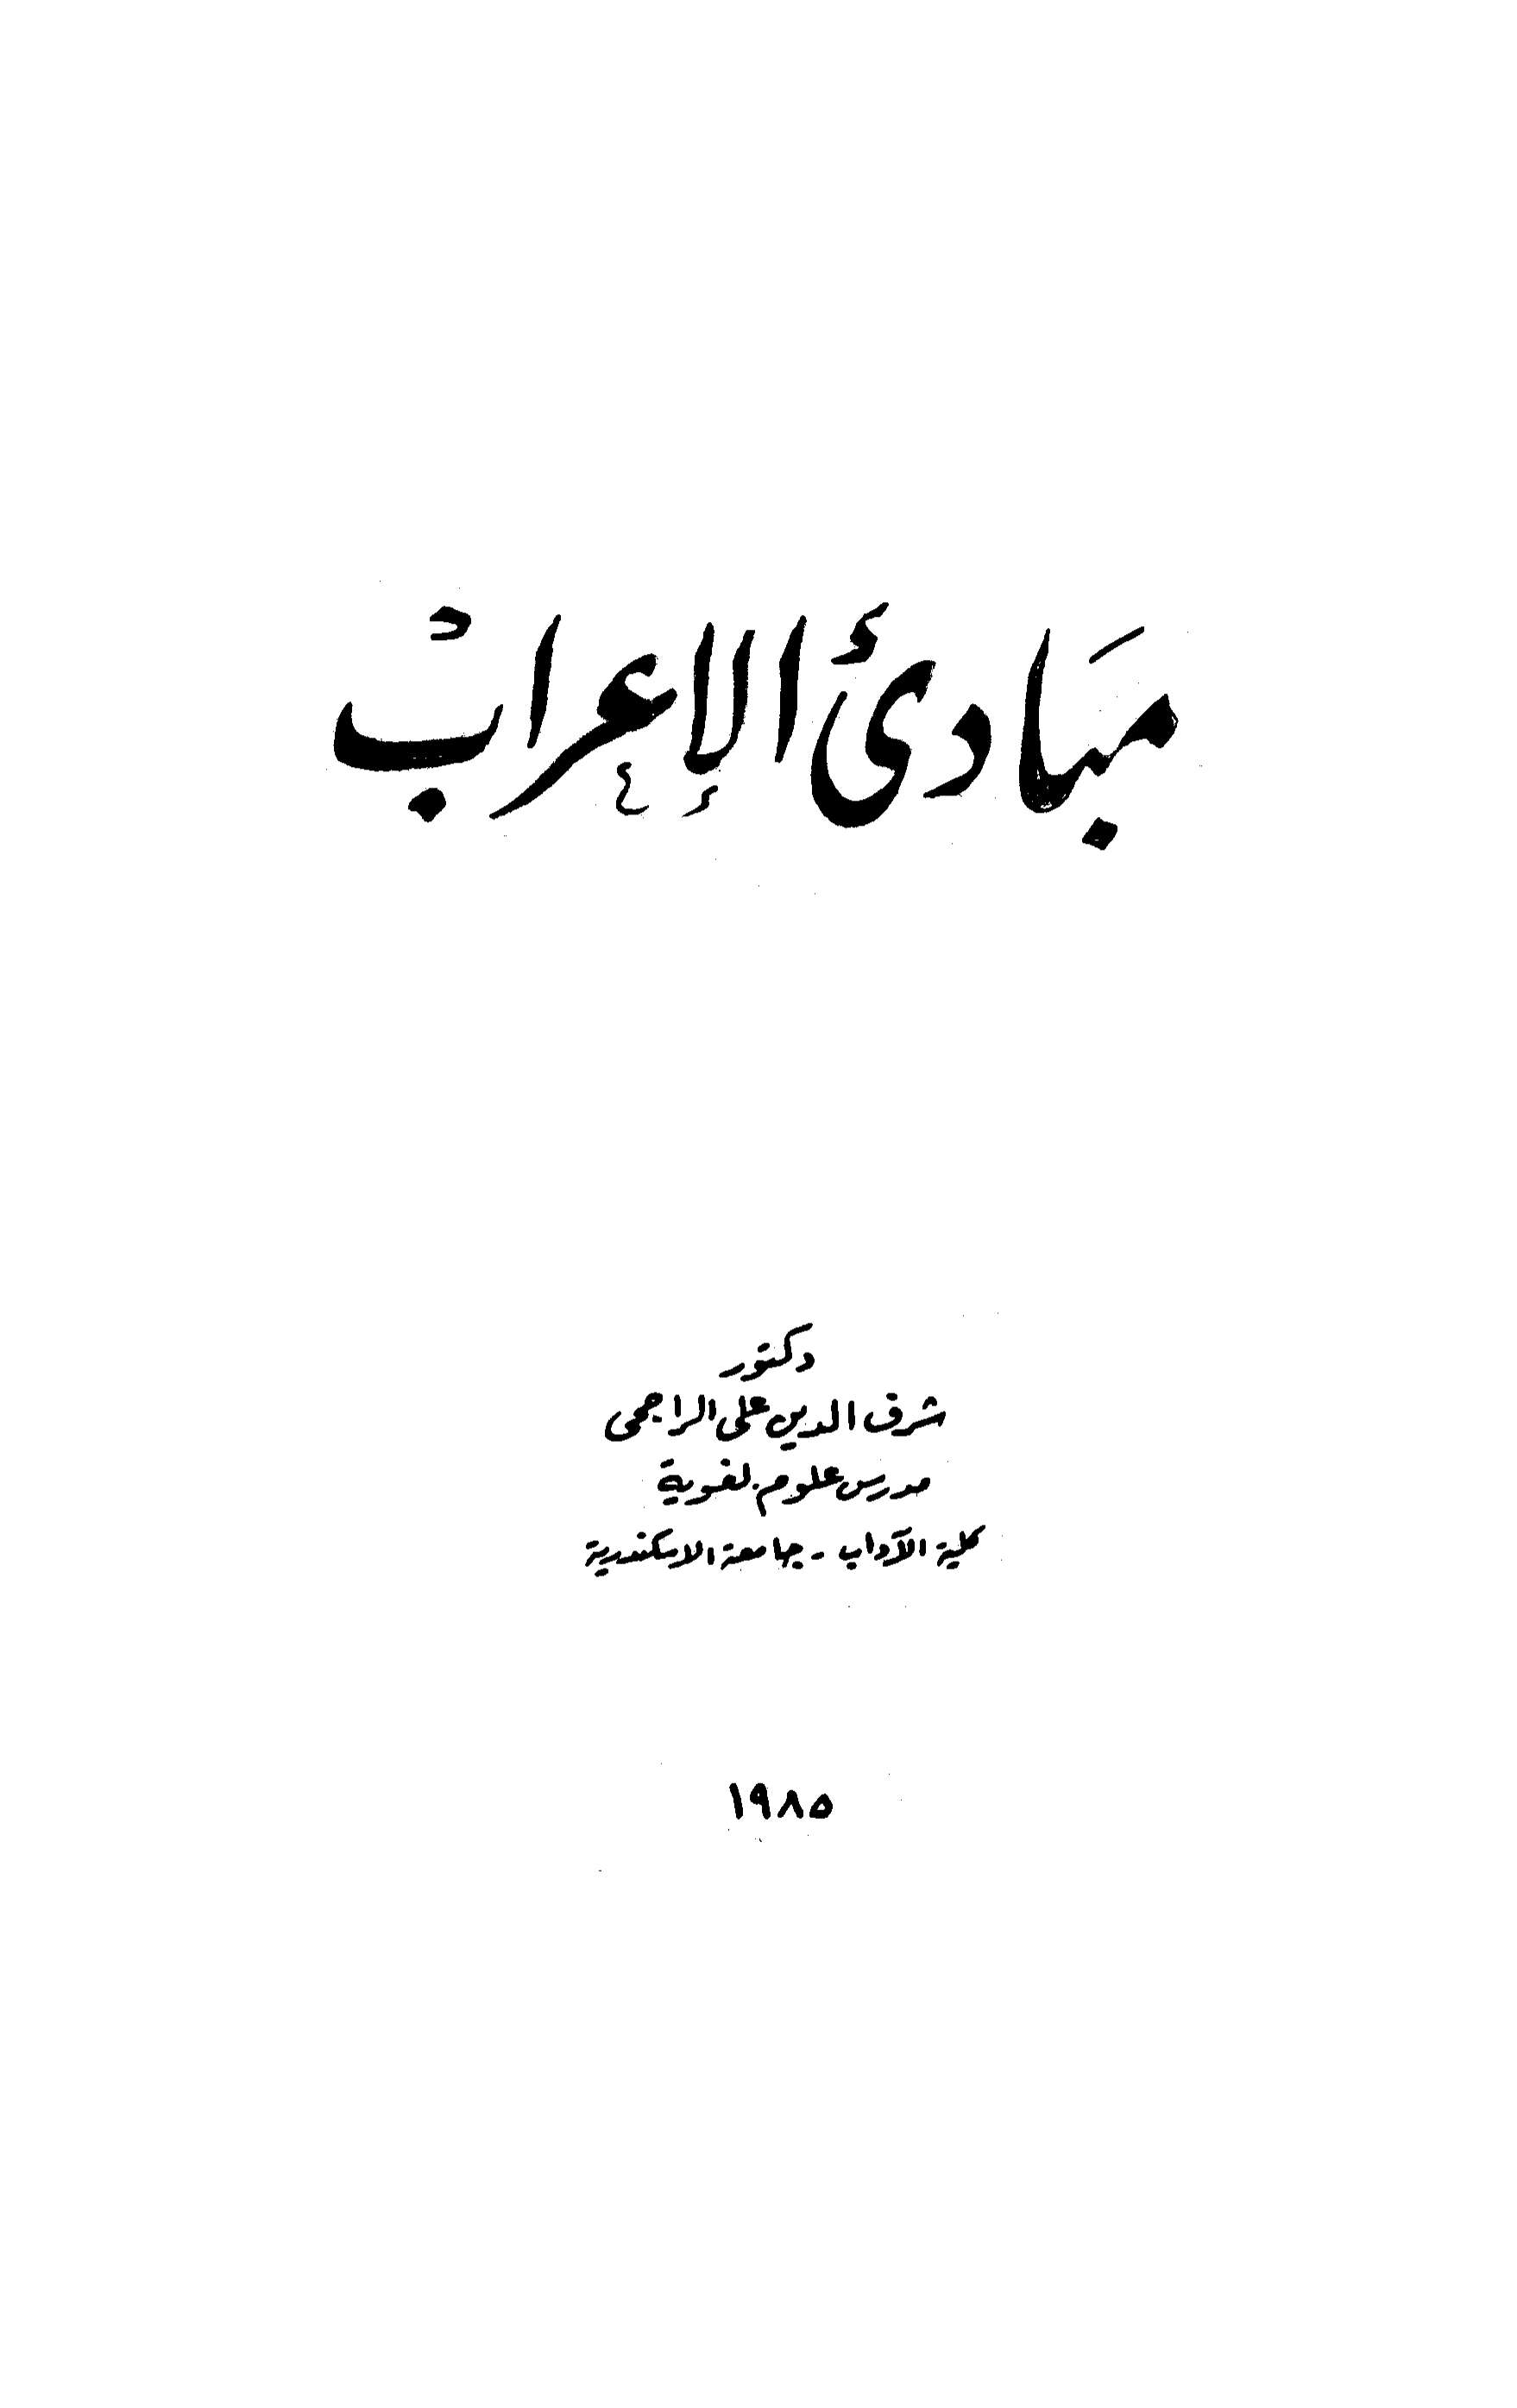 مبادئ الإعراب
دكتور
شرف الدين على الراجحى
مدرس علوم لغوية
كلية الآداب - جامعة الاسكندرية
١٩٨٥